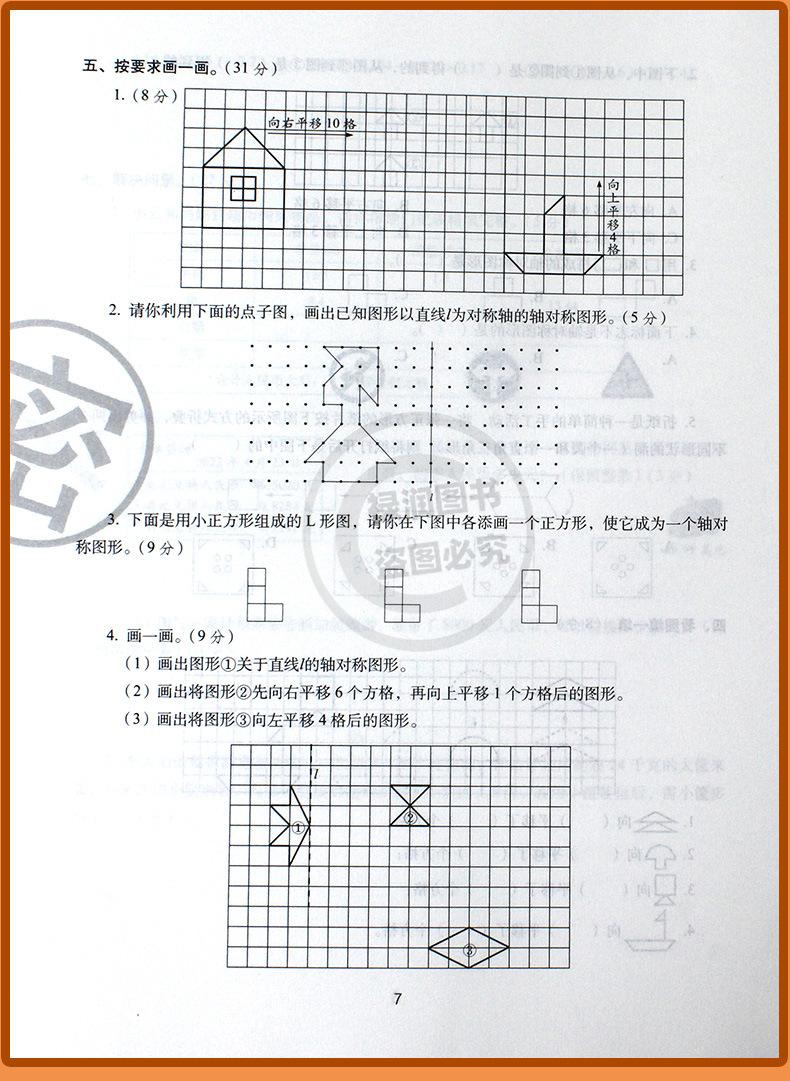 五、按要求画一画。(31 分)
1.(8 分)
向右平移 10 格
向上平移4格
2. 请你利用下面的点子图，画出已知图形以直线l为对称轴的轴对称图形。(5 分)
l
3. 下面是用小正方形组成的 L 形图，请你在下图中各添画一个正方形，使它成为一个轴对
称图形。(9 分)
4. 画一画。(9 分)
(1) 画出图形①关于直线l的轴对称图形。
(2) 画出将图形②先向右平移 6 个方格，再向上平移 1 个方格后的图形。
(3) 画出将图形③向左平移 4 格后的图形。
l
①
②
③
7
密
绿润图书
盗图必究